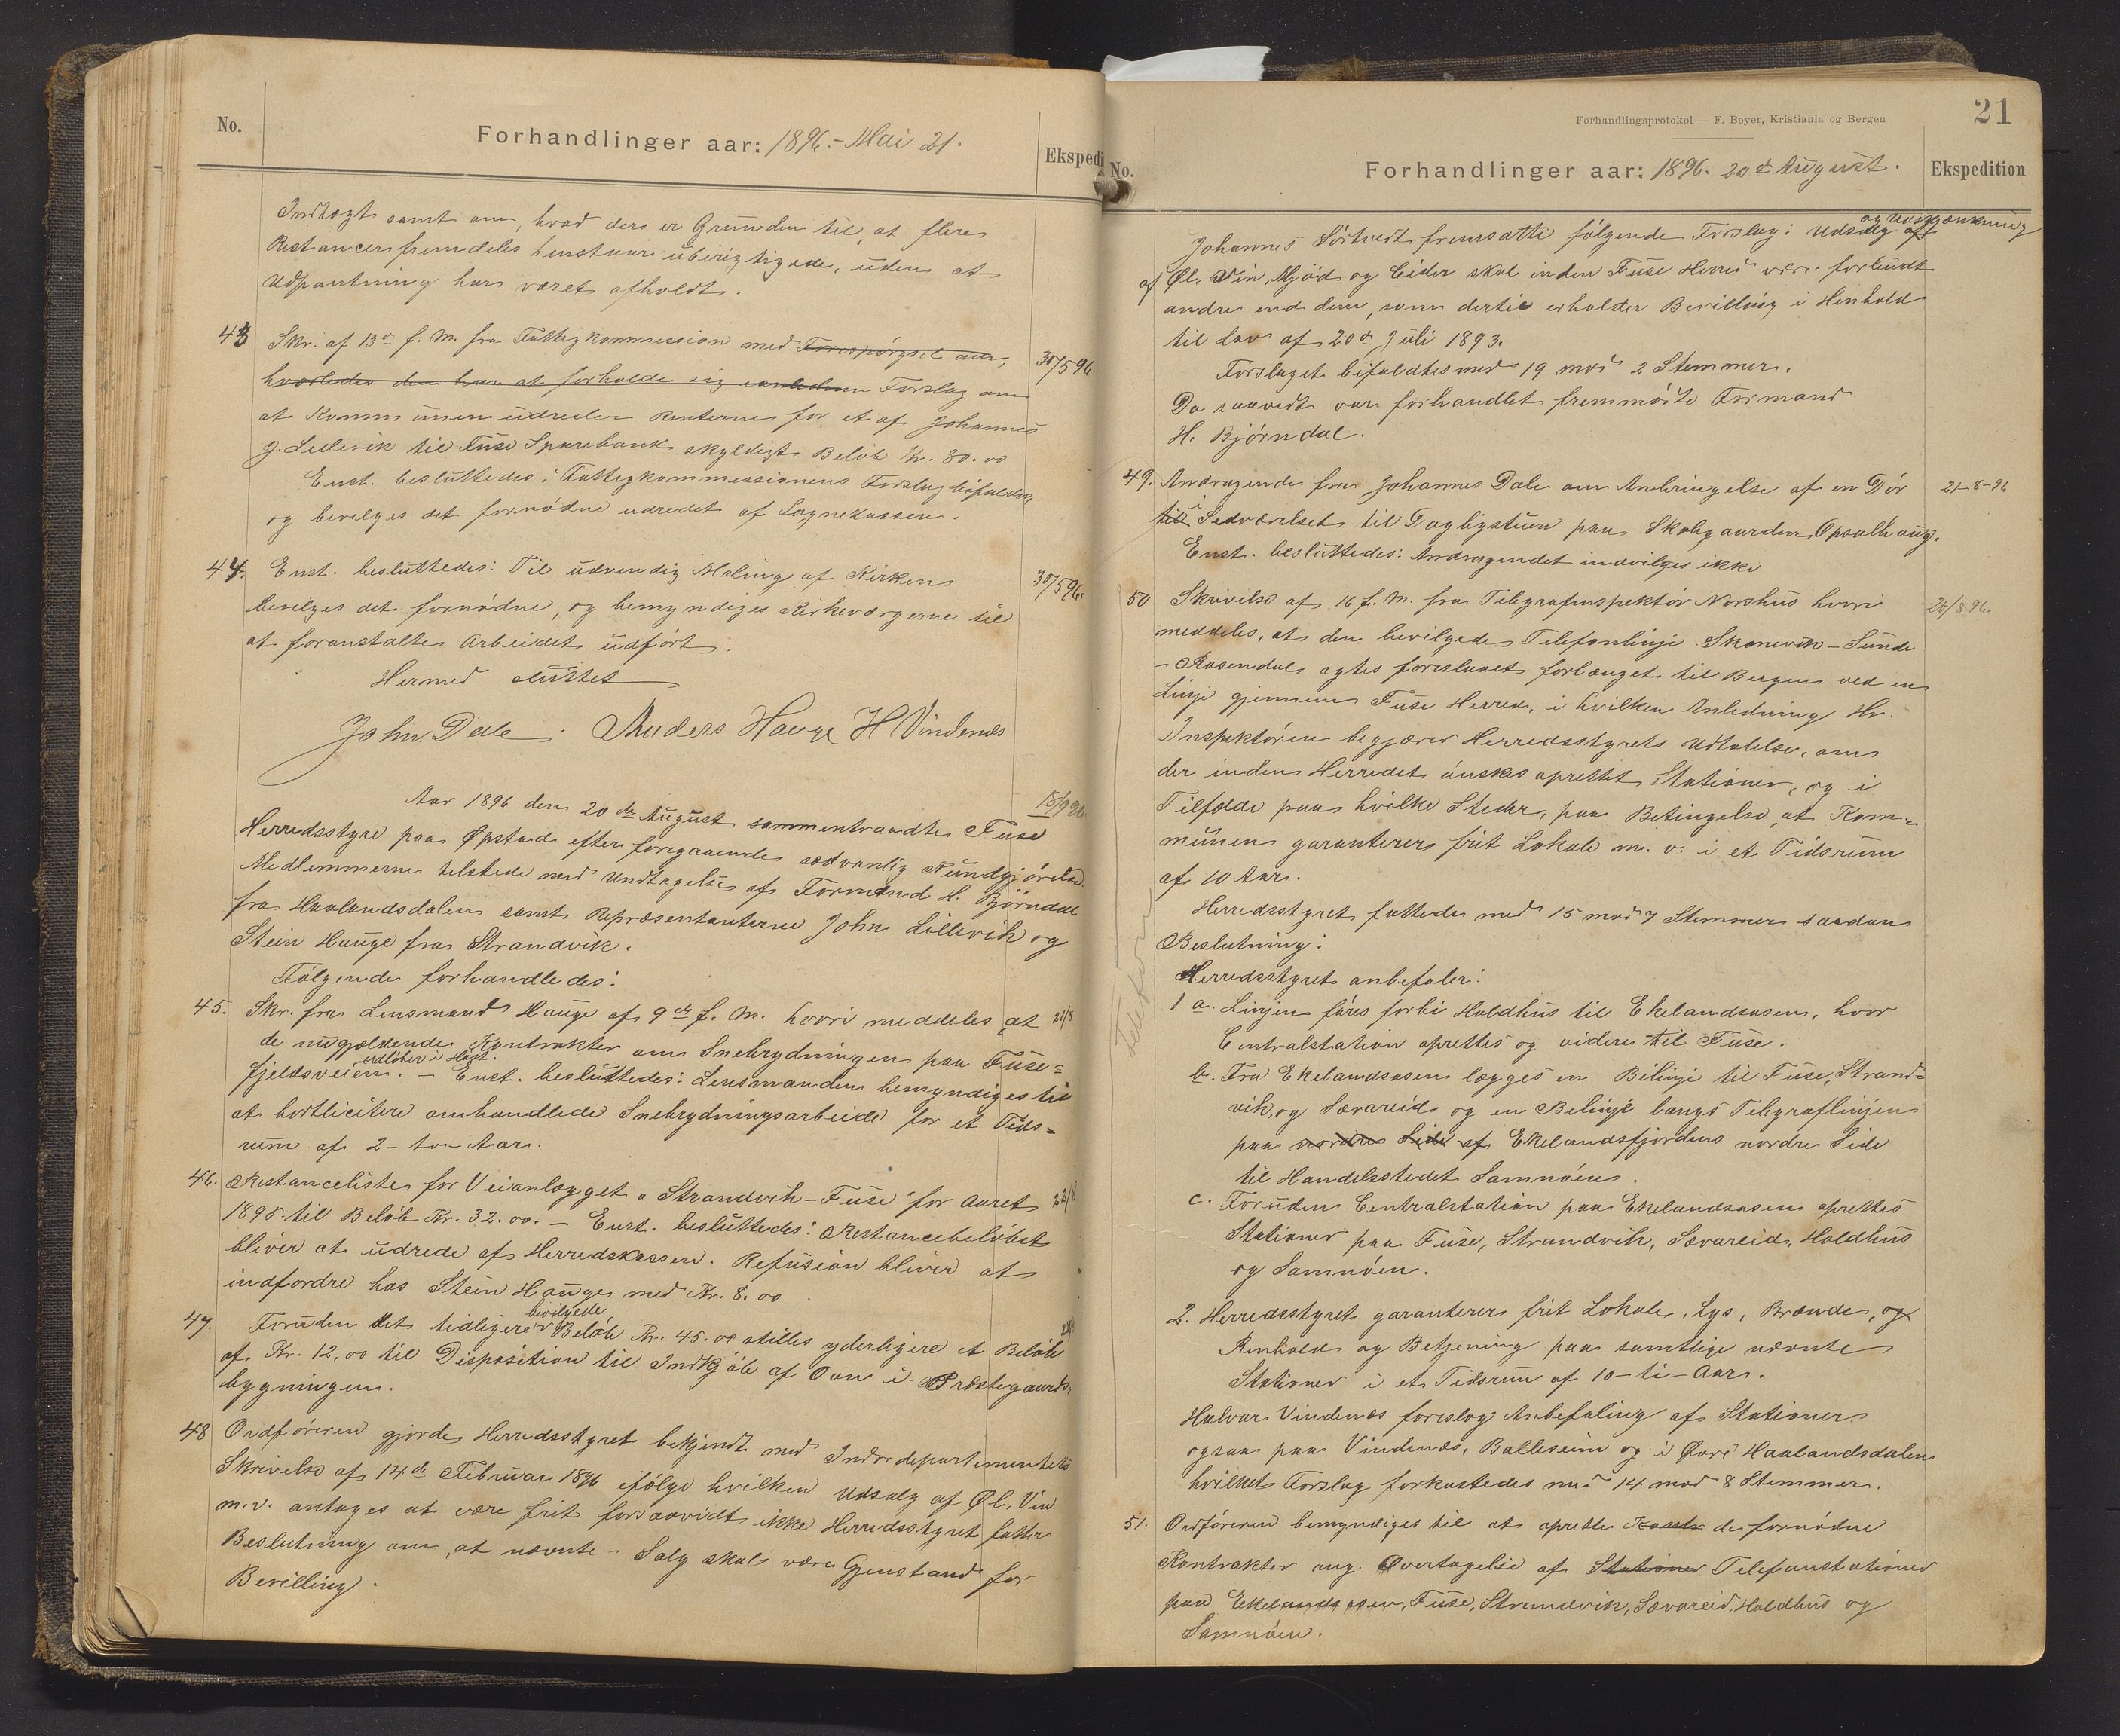 No.
Forhandlinger aar: 1896.- Mai 21.
Ekspedi
Indtægt samt om, hvad der er Grunden til, at flere
Restancer fremdeles henstaar uberigtigede, uden at
Udpantning har været afholdt.
43 Skr. af 13de f. M. fra Fattigkommission med Forespørgsel om, 30/5 96.
hvorledes den har at forholde sig Forslag om
at Kommunen udreder Renterne for et af Johannes
J. Lillevik til Fuse Sparebank skyldigt Beløb Kr. 80.00
Enst. besluttedes: Fattigkommissionens Forslag bifaldes
og bevilges det fornødne udredet af Sognekassen.
44. Enst. besluttedes: Til udvendig Maling af Kirken 30/5 96.
bevilges det fornødne, og bemyndiges Kirkeværgerne til
at foranstalte Arbeidet udført.
Hermed sluttet
John Dale. Anders Hauge H Vindenæs
Aar 1896 den 20de August sammentraadte Fuse 15/9 96
Herredsstyre paa Øpstad efter foregaaende sædvanlig Kundgjørelse.
Medlemmerne tilstede med Undtagelse af Formand H. Bjørndal
fra Haalandsdalen samt Repræsentanterne John Lillevik og
Stein Hauge fra Strandvik.
Følgende forhandledes:
45. Skr. fra Lensmand Hauge af 9de f. M. hvori meddeles at 21/8
de nugjældende Kontrakter om Snebrydningen paa Fuse=
udløber i Høst.
fjeldsveien. - Enst. besluttedes: Lensmanden bemyndiges til
at bortlicitere omhandlede Snebrydningsarbeide for et Tids=
rum af 2-to-Aar.
46. Restanceliste for Veianlægget "Strandvik-Fuse" for Aaret 22/8
1895 til Beløb Kr. 32.00. - Enst. besluttedes: Restancebeløbet
bliver at udrede af Herredskassen. Refusion bliver at
indfordre hos Stein Hauge med Kr. 8.00
47. Foruden det tidligere bevilgede Beløb Kr. 45.00 stilles yderligere et Beløb
af Kr. 12,00 til Disposition til Indkjøb af Ovn i Præstegaards-
bygningen.
48 Ordføreren gjorde Herredsstyret bekjendt med Indredepartementets
Skrivelse af 14de Februar 1896 ifølge hvilken Udsalg af Øl, Vin
m.v. antages at være frit forsaavidt ikke Herredsstyret fatter
Beslutning om, at nævnte Salg skal være Gjenstand for
Bevilling.
Forhandlingsprotokol — F. Beyer, Kristiania og Bergen
21
No.
Forhandlinger aar: 1896. 20de August.
Ekspedition
og Udskjænkning
Johannes Sørtvedt fremsatte følgende Forslag: Udsalg af
af Øl, Vin, Mjød og Cider skal inden Fuse Herred være forbudt
andre end dem, som dertil erholder Bevilling i Henhold
til Lov af 20de Juli 1893.
Forslaget bifaldtes med 19 mod 2 Stemmer.
Da saavidt var forhandlet fremmødte Formand
H. Bjørndal.
49. Andragende fra Johannes Dale om Anbringelse af en Dør 21-8-96
til Sedværelset til Dagligstuen paa Skolegaarden Opsalhaug.
Enst. besluttedes: Andragendet indvilges ikke
50 Skrivelse af 16 f. M. fra Telegrafinspektør Norshus hvori 26/8 96.
meddeles, at den bevilgede Telefonlinje Skonevik - Sunde
- Rosendal agtes foreslaaet forlænget til Bergen ved en
Linje gjennem Fuse Herred, i hvilken Anledning Hr.
Inspektøren begjærer Herredsstyrets Udtalelse, om
der inden Herredet ønskes oprettet Stationer, og i
Tilfælde paa hvilke Steder, paa Betingelse, at Kom=
munen garanterer frit Lokale m. v. i et Tidsrum
af 10 Aar.
Herredsstyret fattede med 15 mod 7 Stemmer saadan
Beslutning:
Herredsstyret anbefaler:
1 a. Linjen føres forbi Holdhus til Ekelandsosen, hvor
Centralstation oprettes og videre til Fuse.
b. Fra Ekelandsosen lægges en Bilinje til Fuse, Strand=
vik, og Sævareid og en Bilinje langs Telegraflinjen
paa nordre Side af Ekelandsfjordens nordre Side
til Handelsstedet Samnøen.
c. Foruden Centralstation paa Ekelandsosen oprettes
Stationer paa Fuse, Strandvik, Sævareid, Holdhus
og Samnøen.
2. Herredsstyret garanterer frit Lokale, Lys, Brænde, og
Renhold og Betjening paa samtlige nævnte
Stationer i et Tidsrum af 10-ti-Aar.
Halvar Vindenæs foreslog Anbefaling af Stationer
ogsaa paa Vindenæs, Balleseim og i Øvre Haalandsdalen
hvilket Forslag forkastedes med 14 mod 8 Stemmer.
51. Ordføreren bemyndiges til at oprette de fornødne
Kontrakter ang. Overtagelse af Stationer Telefonstationer
paa Ekelandsosen, Fuse, Strandvik, Sævareid, Holdhus og
Samnøen.